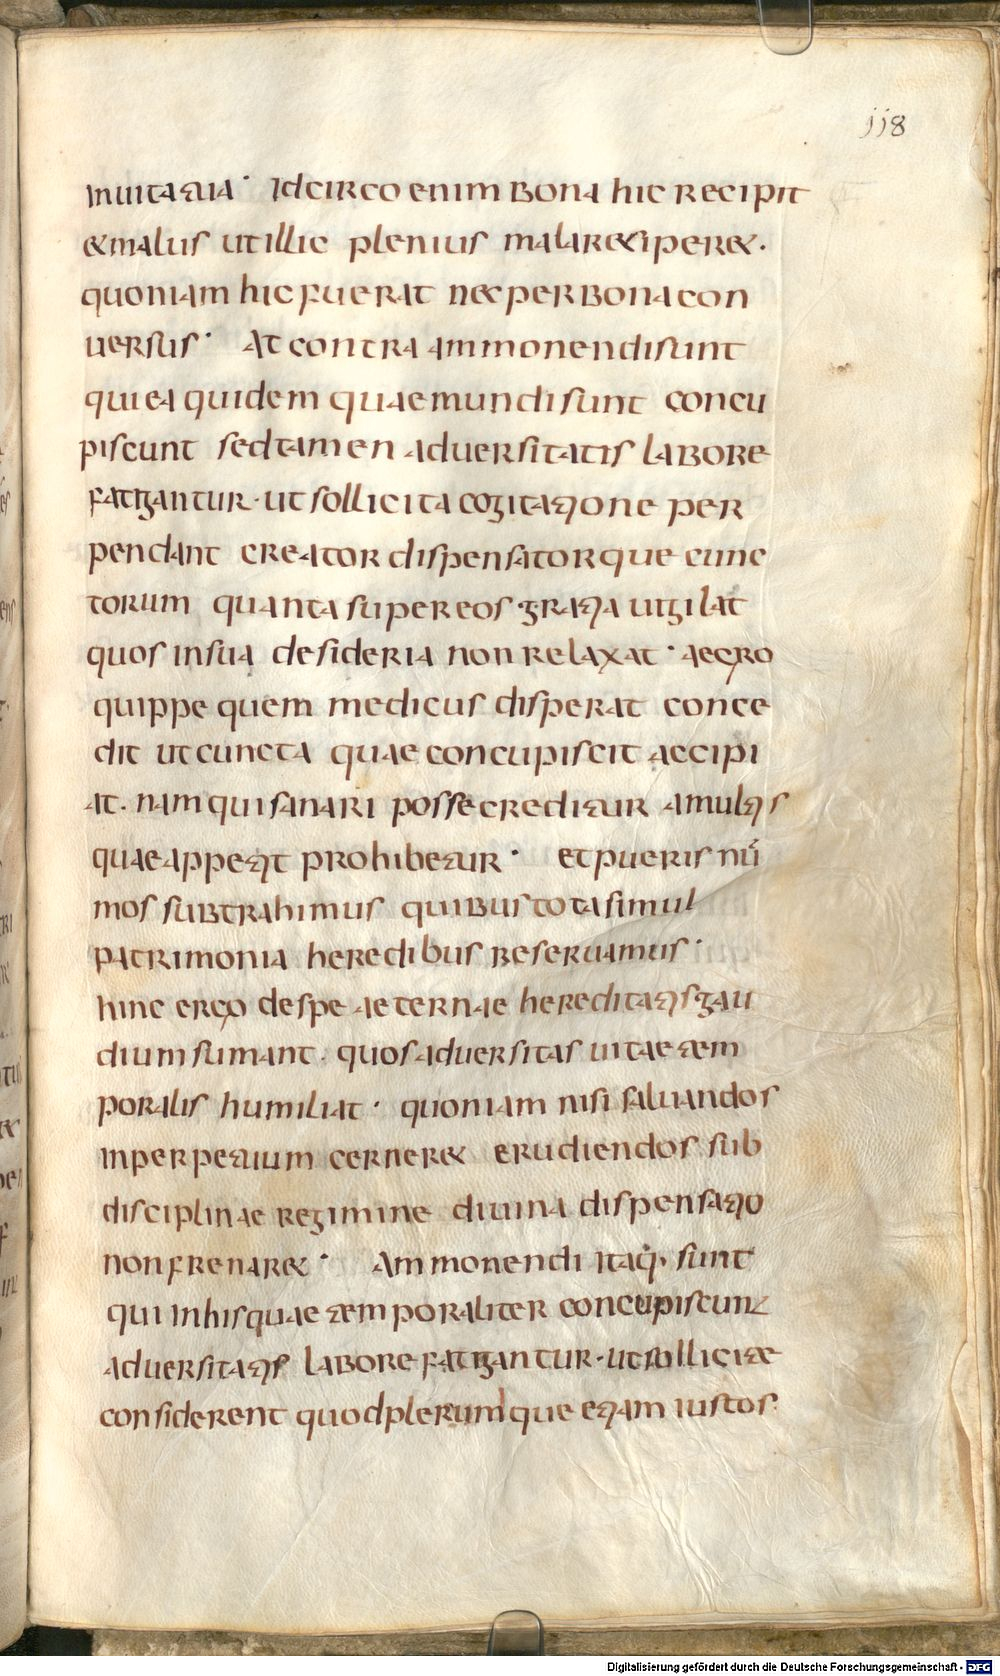 118
inuitatuia · Idcirco enim bona hic recipit
& malus ut illic plenius mala recipere&.
quoniam hic fuerat nec per bona con
uersus · At contra ammonendi sunt
qui ea quidem quae mundi sunt concu
piscunt sed tamen aduersitatis labore
fatigantur · ut sollicita cogitatione per
pendant creator dispensatorque cunc
torum quanta super eos gratia uigilat
quos in sua desideria non relaxat · aegro
quippe quem medicus disperat conce
dit ut cuncta quae concupiscit accipi
at · nam qui sanari posse creditur a multis
quae appetit prohibetur · et pueris nū
mos subtrahimus quibus tota simul
patrimonia heredibus reseruamus ·
hinc ergo de spe aeternae hereditatis gau
dium sumant · quos aduersitas uitae tem
poralis humiliat · quoniam nisi saluandos
in perpetuum cernere& erudiendos sub
disciplinae regimine diuina dispensatio
non frenare& · Ammonendi itaq· sunt
qui in his quae temporaliter concupiscunt
aduersitatis labore fatigantur · ut sollicite
considerent quod plerumque etiam iustos
Digitalisierung gefördert durch die Deutsche Forschungsgemeinschaft - DFG